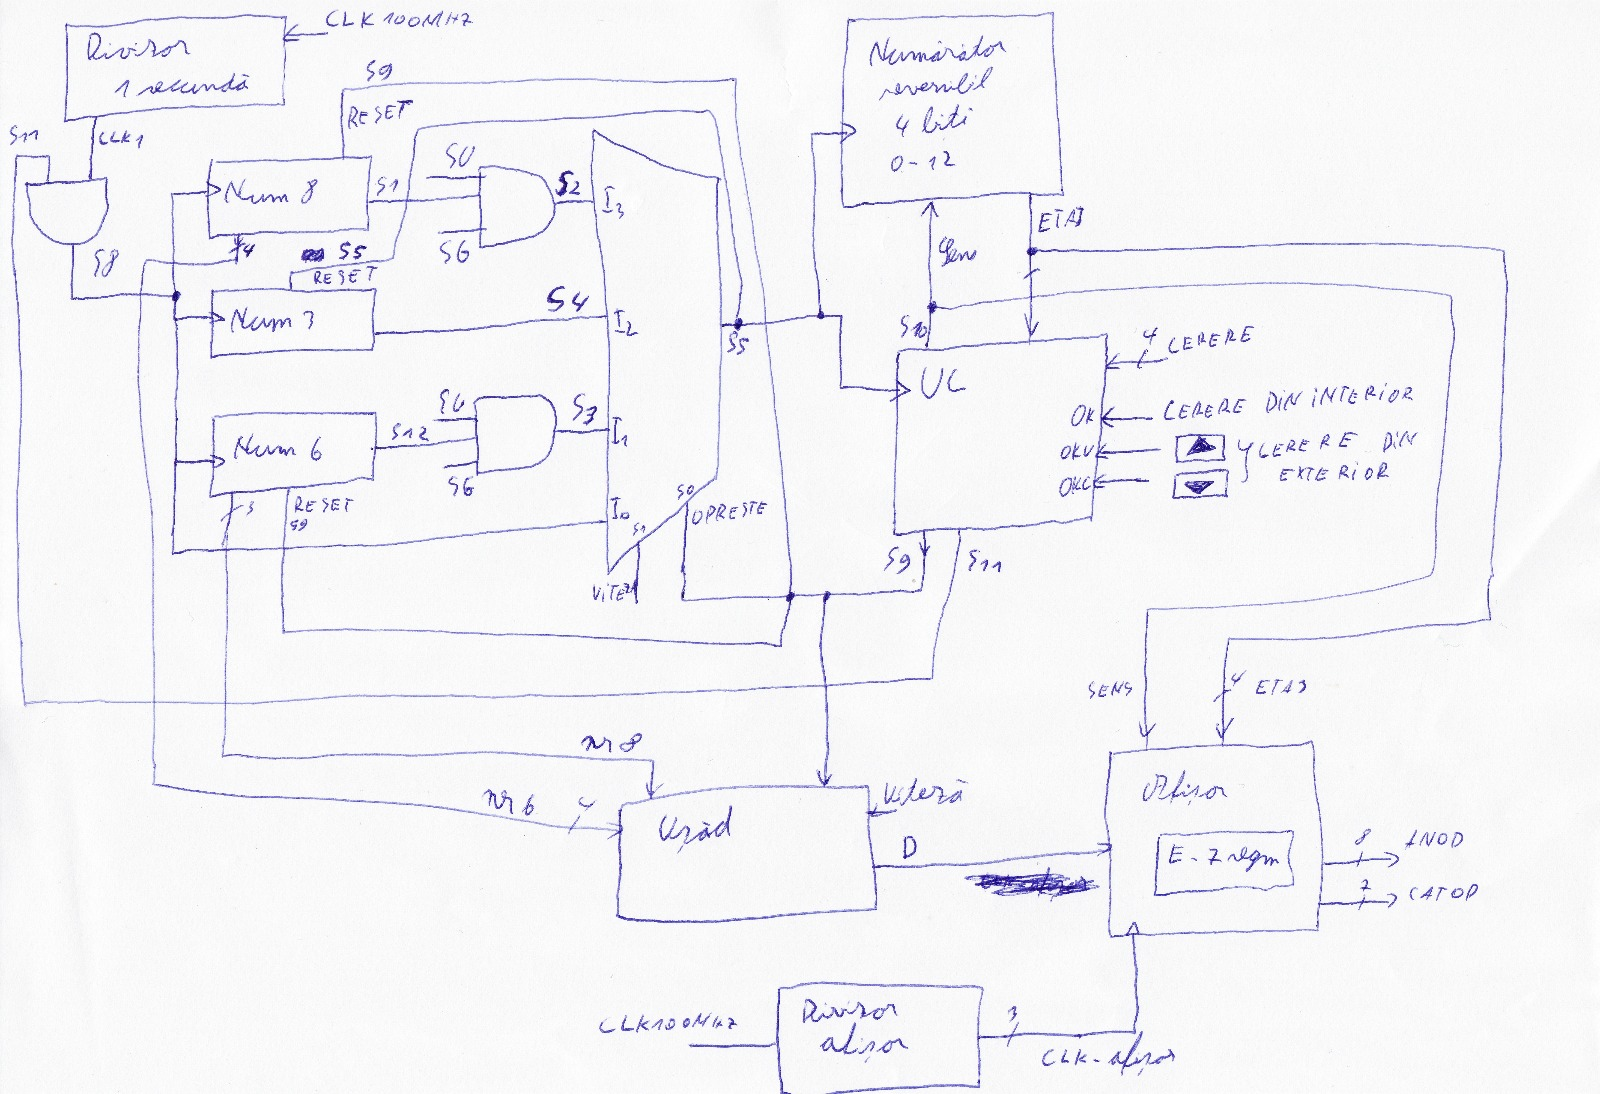 Divizor
1 secundă
CLK 100MHZ
S11
CLK1
S8
S9
RESET
Num 8
S1
4
SU
S6
S2
I3
S5
RESET
Num 3
S4
I2
S5
Num 6
S12
SU
S6
S3
I1
3
RESET
S9
I0
S1
S0
VITEZĂ
OPRESTE
Numărător
reversibil
4 biti
0-12
Sens
ETAJ
S10
UC
4
CERERE
OK
CERERE DIN INTERIOR
OKU
OKC
CERERE DIN
EXTERIOR
S9
S11
SENS
4
ETAJ
nr 8
nr 6
4
Ușăd
Viteză
D
Afișor
E-7 segm
8
ANOD
7
CATOD
CLK100MHZ
Divizor
afișor
3
CLK-afișor